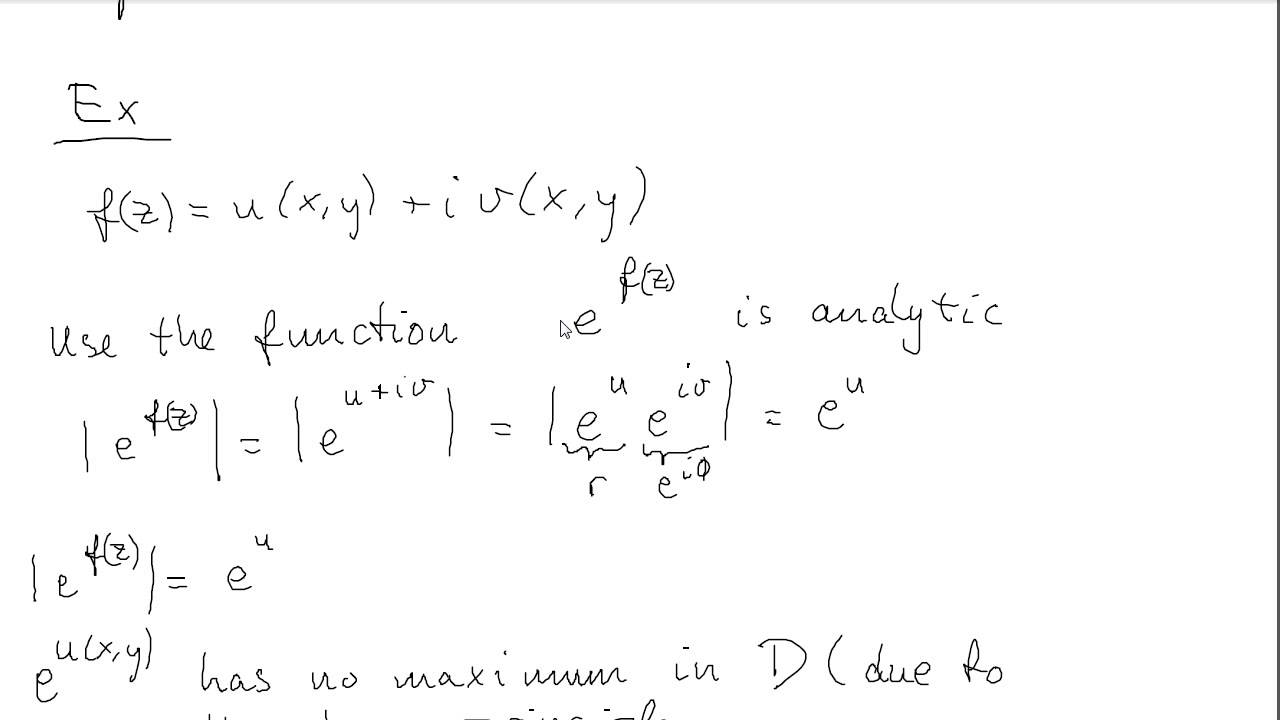 Ex
f(z) = u(x,y) + i v(x,y)
use the function e^{f(z)} is analytic
|e^{f(z)}| = |e^{u+iv}| = |e^u e^{iv}| = e^u
r e^{iϕ}
|e^{f(z)}| = e^u
e^{u(x,y)} has no maximum in D (due to